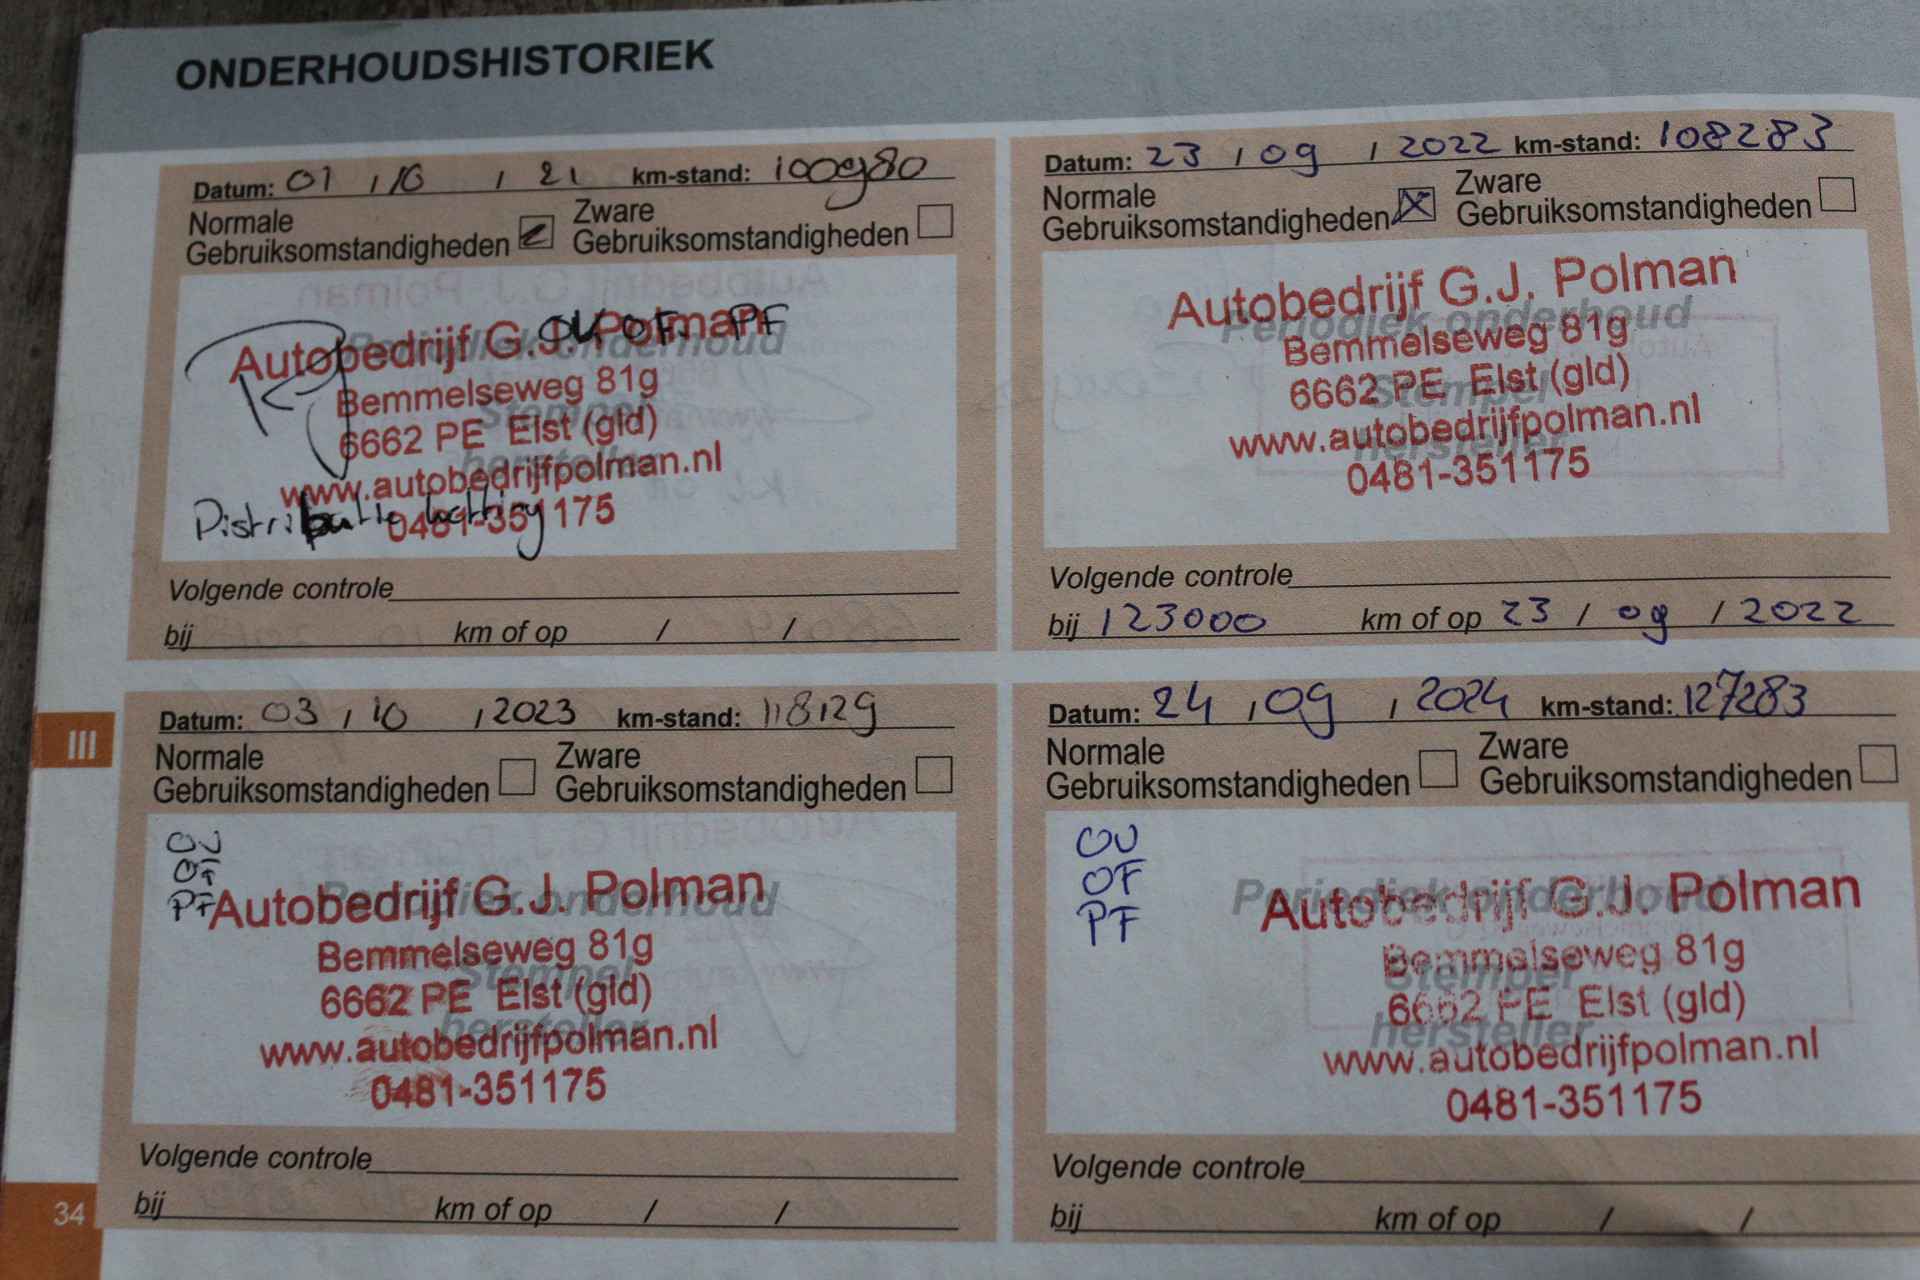 ONDERHOUDSHISTORIEK
Datum: 01 / 10 / 21 km-stand: 100980
Normale Gebruiksomstandigheden
Zware Gebruiksomstandigheden
OV OF. PF
Autobedrijf G.J. Polman
Periodiek onderhoud
Bemmelseweg 81g
Stempel
6662 PE Elst (gld)
hersteller
www.autobedrijfpolman.nl
0481-351175
Distributie ketting
Volgende controle
bij km of op / /
Datum: 23 / 09 / 2022 km-stand: 108283
Normale Gebruiksomstandigheden
Zware Gebruiksomstandigheden
Autobedrijf G.J. Polman
Periodiek onderhoud
Bemmelseweg 81g
Stempel
6662 PE Elst (gld)
hersteller
www.autobedrijfpolman.nl
0481-351175
Volgende controle
bij 123000 km of op 23 / 09 / 2022
III
Datum: 03 / 10 / 2023 km-stand: 118129
Normale Gebruiksomstandigheden
Zware Gebruiksomstandigheden
OV
OF
PF
Autobedrijf G.J. Polman
Periodiek onderhoud
Bemmelseweg 81g
Stempel
6662 PE Elst (gld)
hersteller
www.autobedrijfpolman.nl
0481-351175
Volgende controle
bij km of op / /
Datum: 24 / 09 / 2024 km-stand: 127283
Normale Gebruiksomstandigheden
Zware Gebruiksomstandigheden
OV
OF
PF
Autobedrijf G.J. Polman
Periodiek onderhoud
Bemmelseweg 81g
Stempel
6662 PE Elst (gld)
hersteller
www.autobedrijfpolman.nl
0481-351175
Volgende controle
bij km of op / /
34